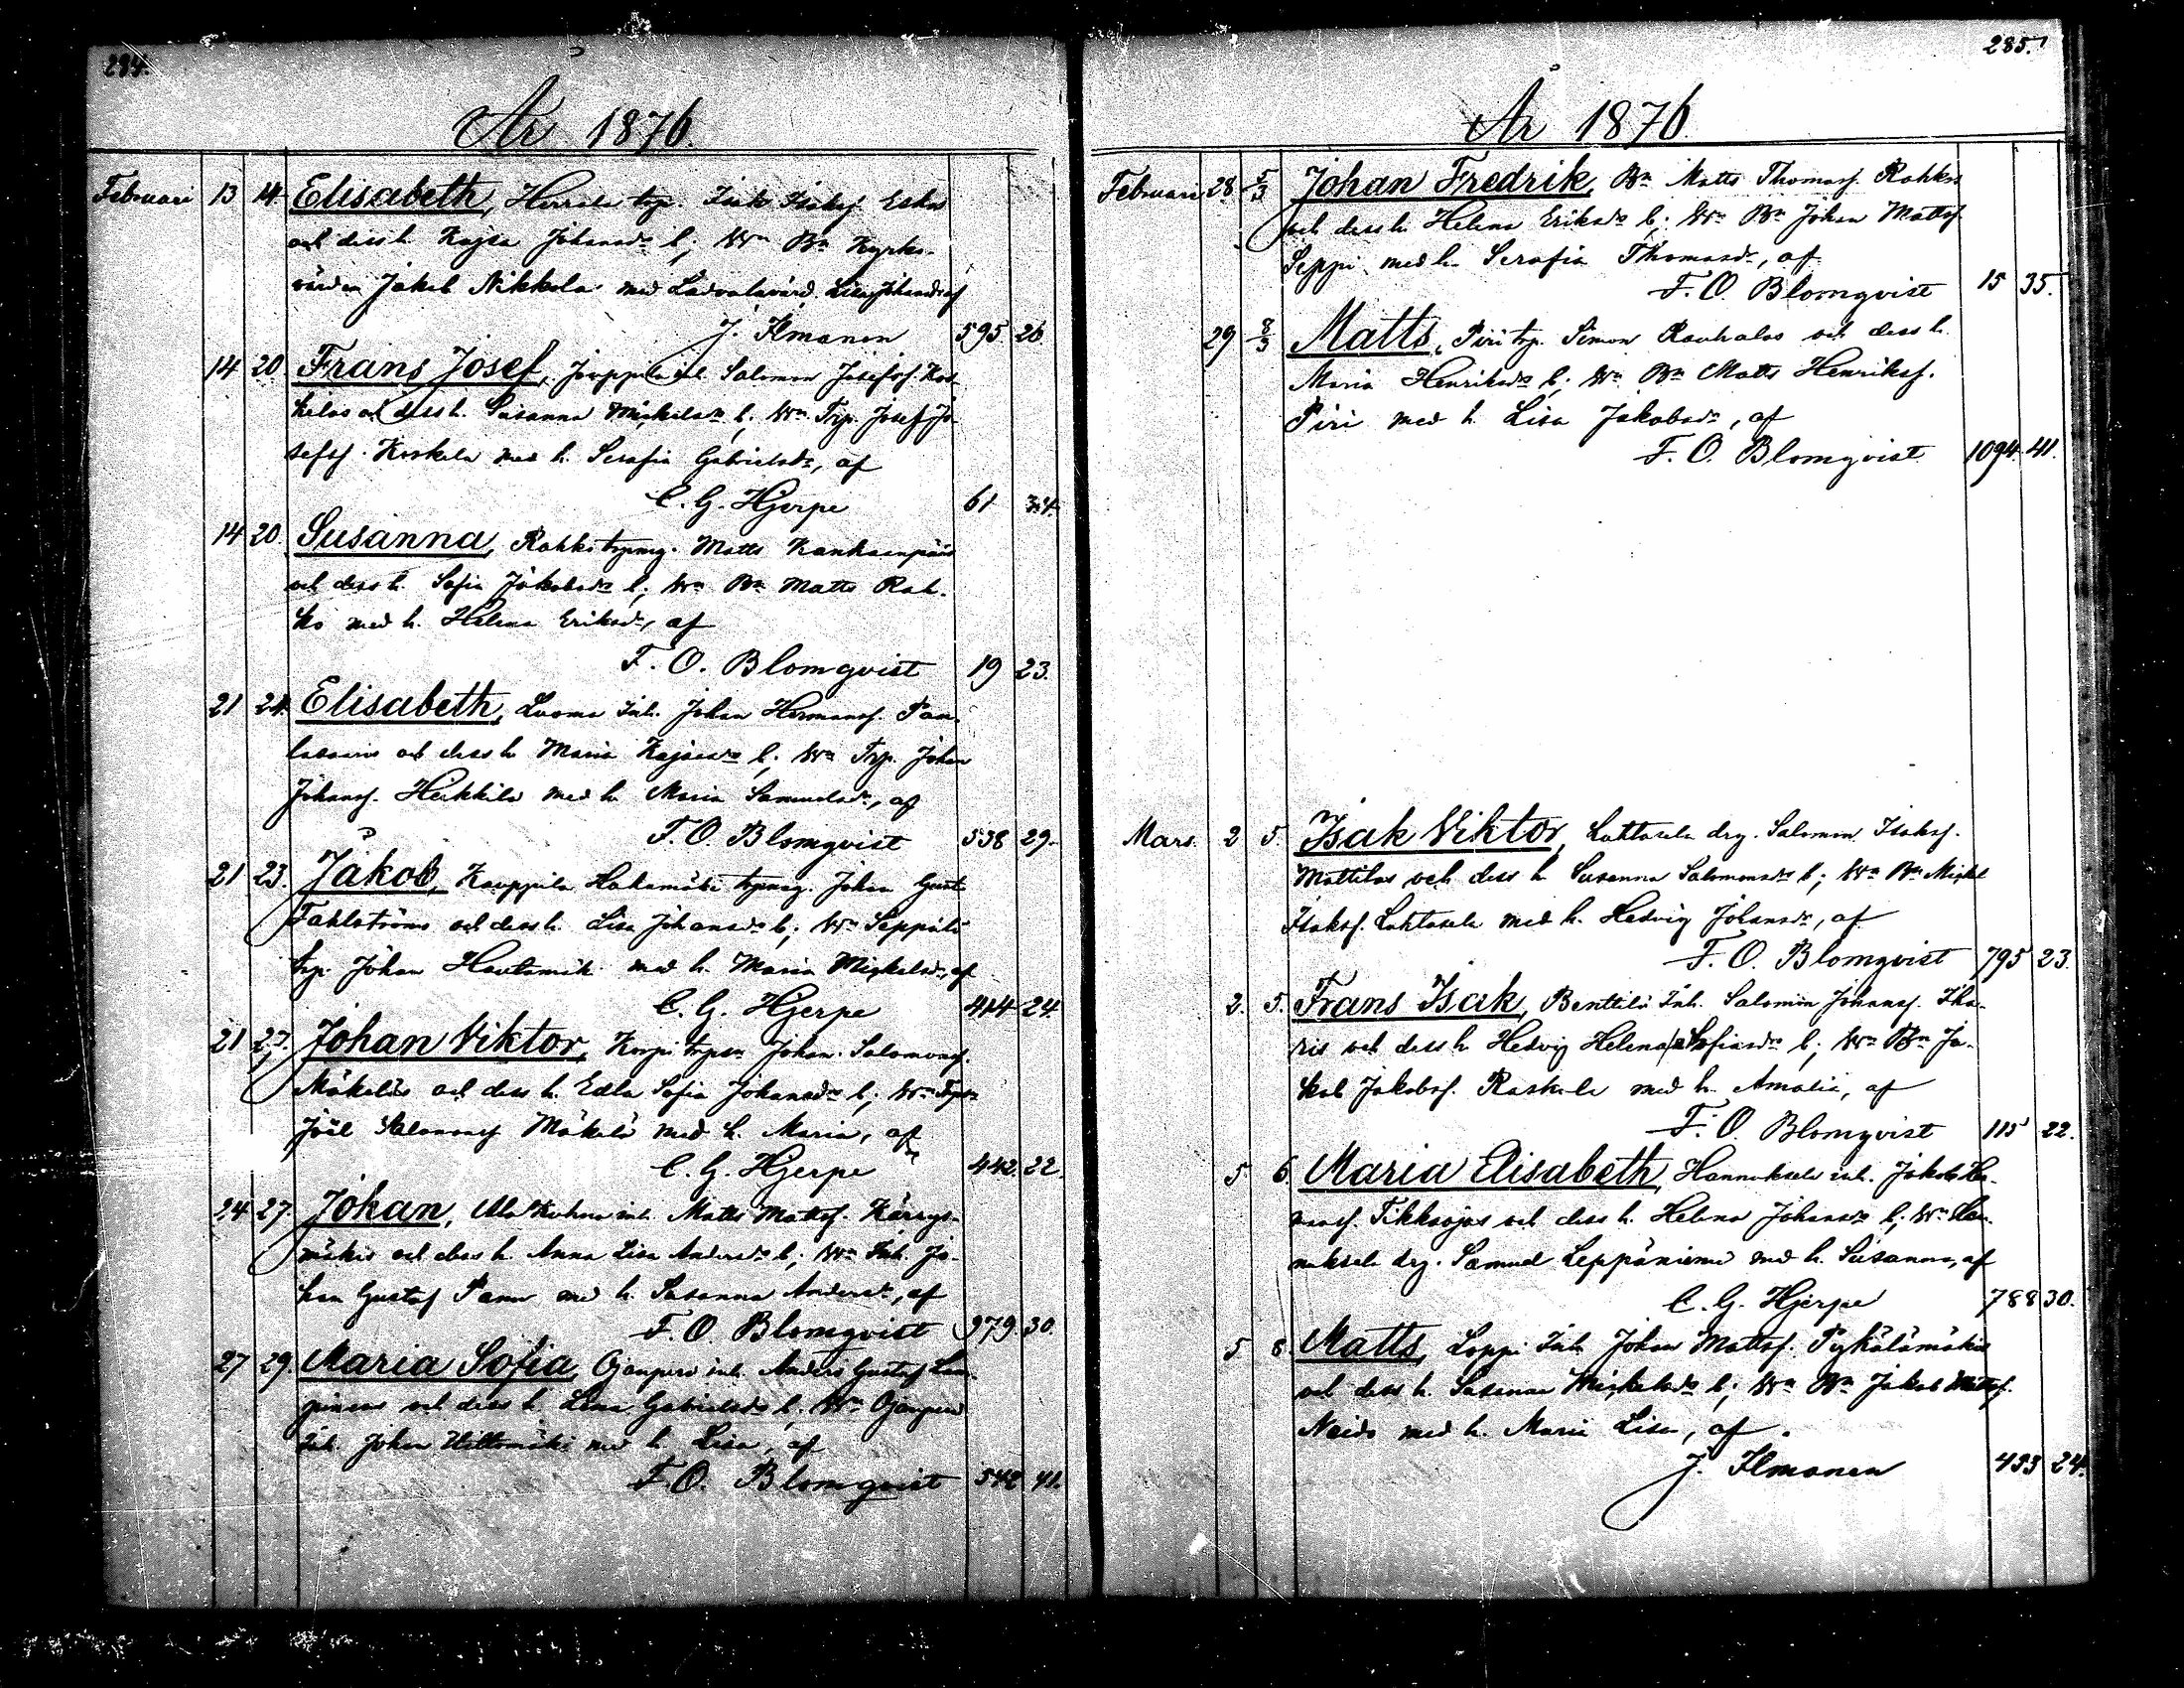 284.
År 1876.
Februari 13 14 Elisabeth, Herrala trp. Isak Isaksf. Esko
och dess h. Kajsa Johansdr b; Wn Bn Kyrko-
värden Jakob Nikkola med Ladvalavärd. Lisa Johansdr af
J. Ilmonen 595 26
14 20. Frans Josef, Jouppila inh. Salomon Josefsf. Kos-
kelas och dess h. Susanna Mickelsdr b; Wn Trp. Josef Jo-
sefsf. Koskela med h. Serafia Gabrielsdr, af
C. G. Hjerpe 61 34.
14 20. Susanna, Rahko trpmg. Matts Kankaanpääs
och dess h. Sofia Jakobsdr b; Wn Bn Matts Rah-
ko med h. Helena Eriksdr, af
F. O. Blomqvist 19 23.
21 24. Elisabeth, Luoma Inh. Johan Hermansf.
och dess h Maria Kajsadr b; Wn Trp. Johan
Johansf. Heikkilä med h. Maria Samuelsdr, af
F. O. Blomqvist 538 29.
21 23. Jakob, Kauppila Hakamäki trpmg. Johan Gust.
Fahlströms och dess h. Lisa Johansdr b; Wn Seppälä
trp. Johan Hautamäk med h. Maria Mickelsdr, af
C. G. Hjerpe 414 24
21 27. Johan Viktor, Korpi trpsn Johan Salomonsf.
Mäkeläs och dess h. Edla Sofia Johansdr b; Wn Trpsn
Joel Salomonsf Mäkelä med h. Maria, af
C. G. Hjerpe 442. 22.
24 27 Johan, Ala Kuhna inh. Matts Mattsf. Kärry-
mäkis och dess h. Anna Lisa Andersdr b; Wn Inh. Jo-
han Gustaf Panu med h. Susanna Andersdr, af
F. O. Blomqvist 979. 30.
27 29. Maria Sofia, Ojanperä inh. Anders Gustaf Lam-
pinens och dess h. Lena Gabrielsdr b; Wn Ojanperä
Inh. Johan med h Lisa, af
F. O. Blomqvist 542 41.
285.
År 1876.
Februari 28 5/3 Johan Fredrik, Bn Matts Thomasf. Rahkos
och dess h. Helena Eriksdr b; Wn Bn Johan Mattsf
Seppi med h. Serafia Thomasdr, af
F. O. Blomqvist 15 35.
29 8/3 Matts, Piri trp. Simon Rauhalas och dess h.
Maria Henriksdr b; Wn Bn Matts Henriksf.
Piri med h. Lisa Jakobsdr, af
F. O. Blomqvist 1094. 41.
Mars. 2 5. Isak Viktor, Luhtasela drg. Salomon Isaksf.
Mattilas och dess h Susanna Salomonsdr b; Wn Bn Mickel
Isaksf. Luhtasela med h. Hedvig Johansdr, af
F. O. Blomqvist 795 23.
2. 5. Frans Isak, Benttilä Inh. Salomon Johansf.
och dess h Hedvig Helena Sofiasdr b; Wn Bn Ja-
kob Jakobsf. Raskala med h. Amalia, af
F. O. Blomqvist 115 22.
5 6. Maria Elisabeth, Hannuksela inh. Jakob
Tikkaojas och dess h. Helena Johansdr b; Wn Han-
nuksela drg. Samuel Leppäniemi med h. Susanna, af
C. G. Hjerpe 788 30.
5 8. Matts, Loppi Inh. Johan Mattsf. Pyhälämäkis
och dess h. Susanna Mickelsdr b; Wn Bn Jakob Mattsf.
Neiro med h. Maria Lisa, af
J. Ilmonen 453 24.